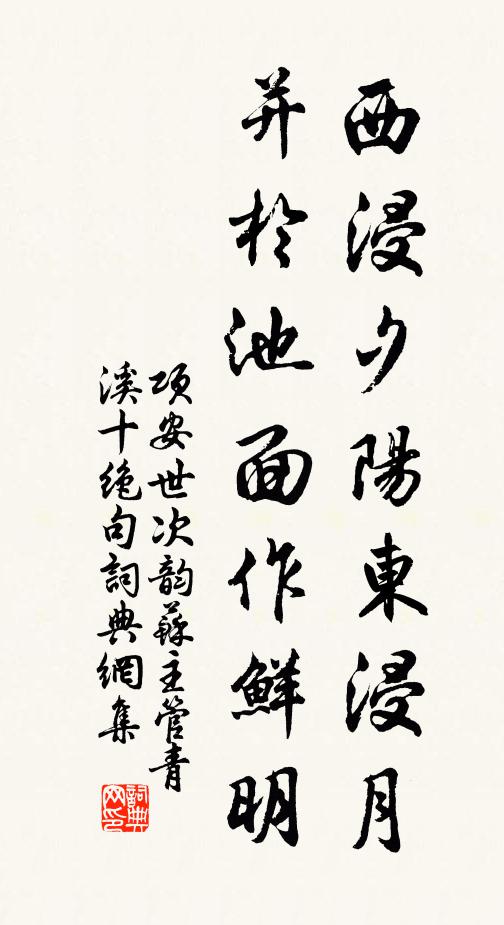 西浸夕陽東浸月
并於池面作鮮明
項安世次韵蘇主管青
溪十絶句詞典網集
詞典
网印